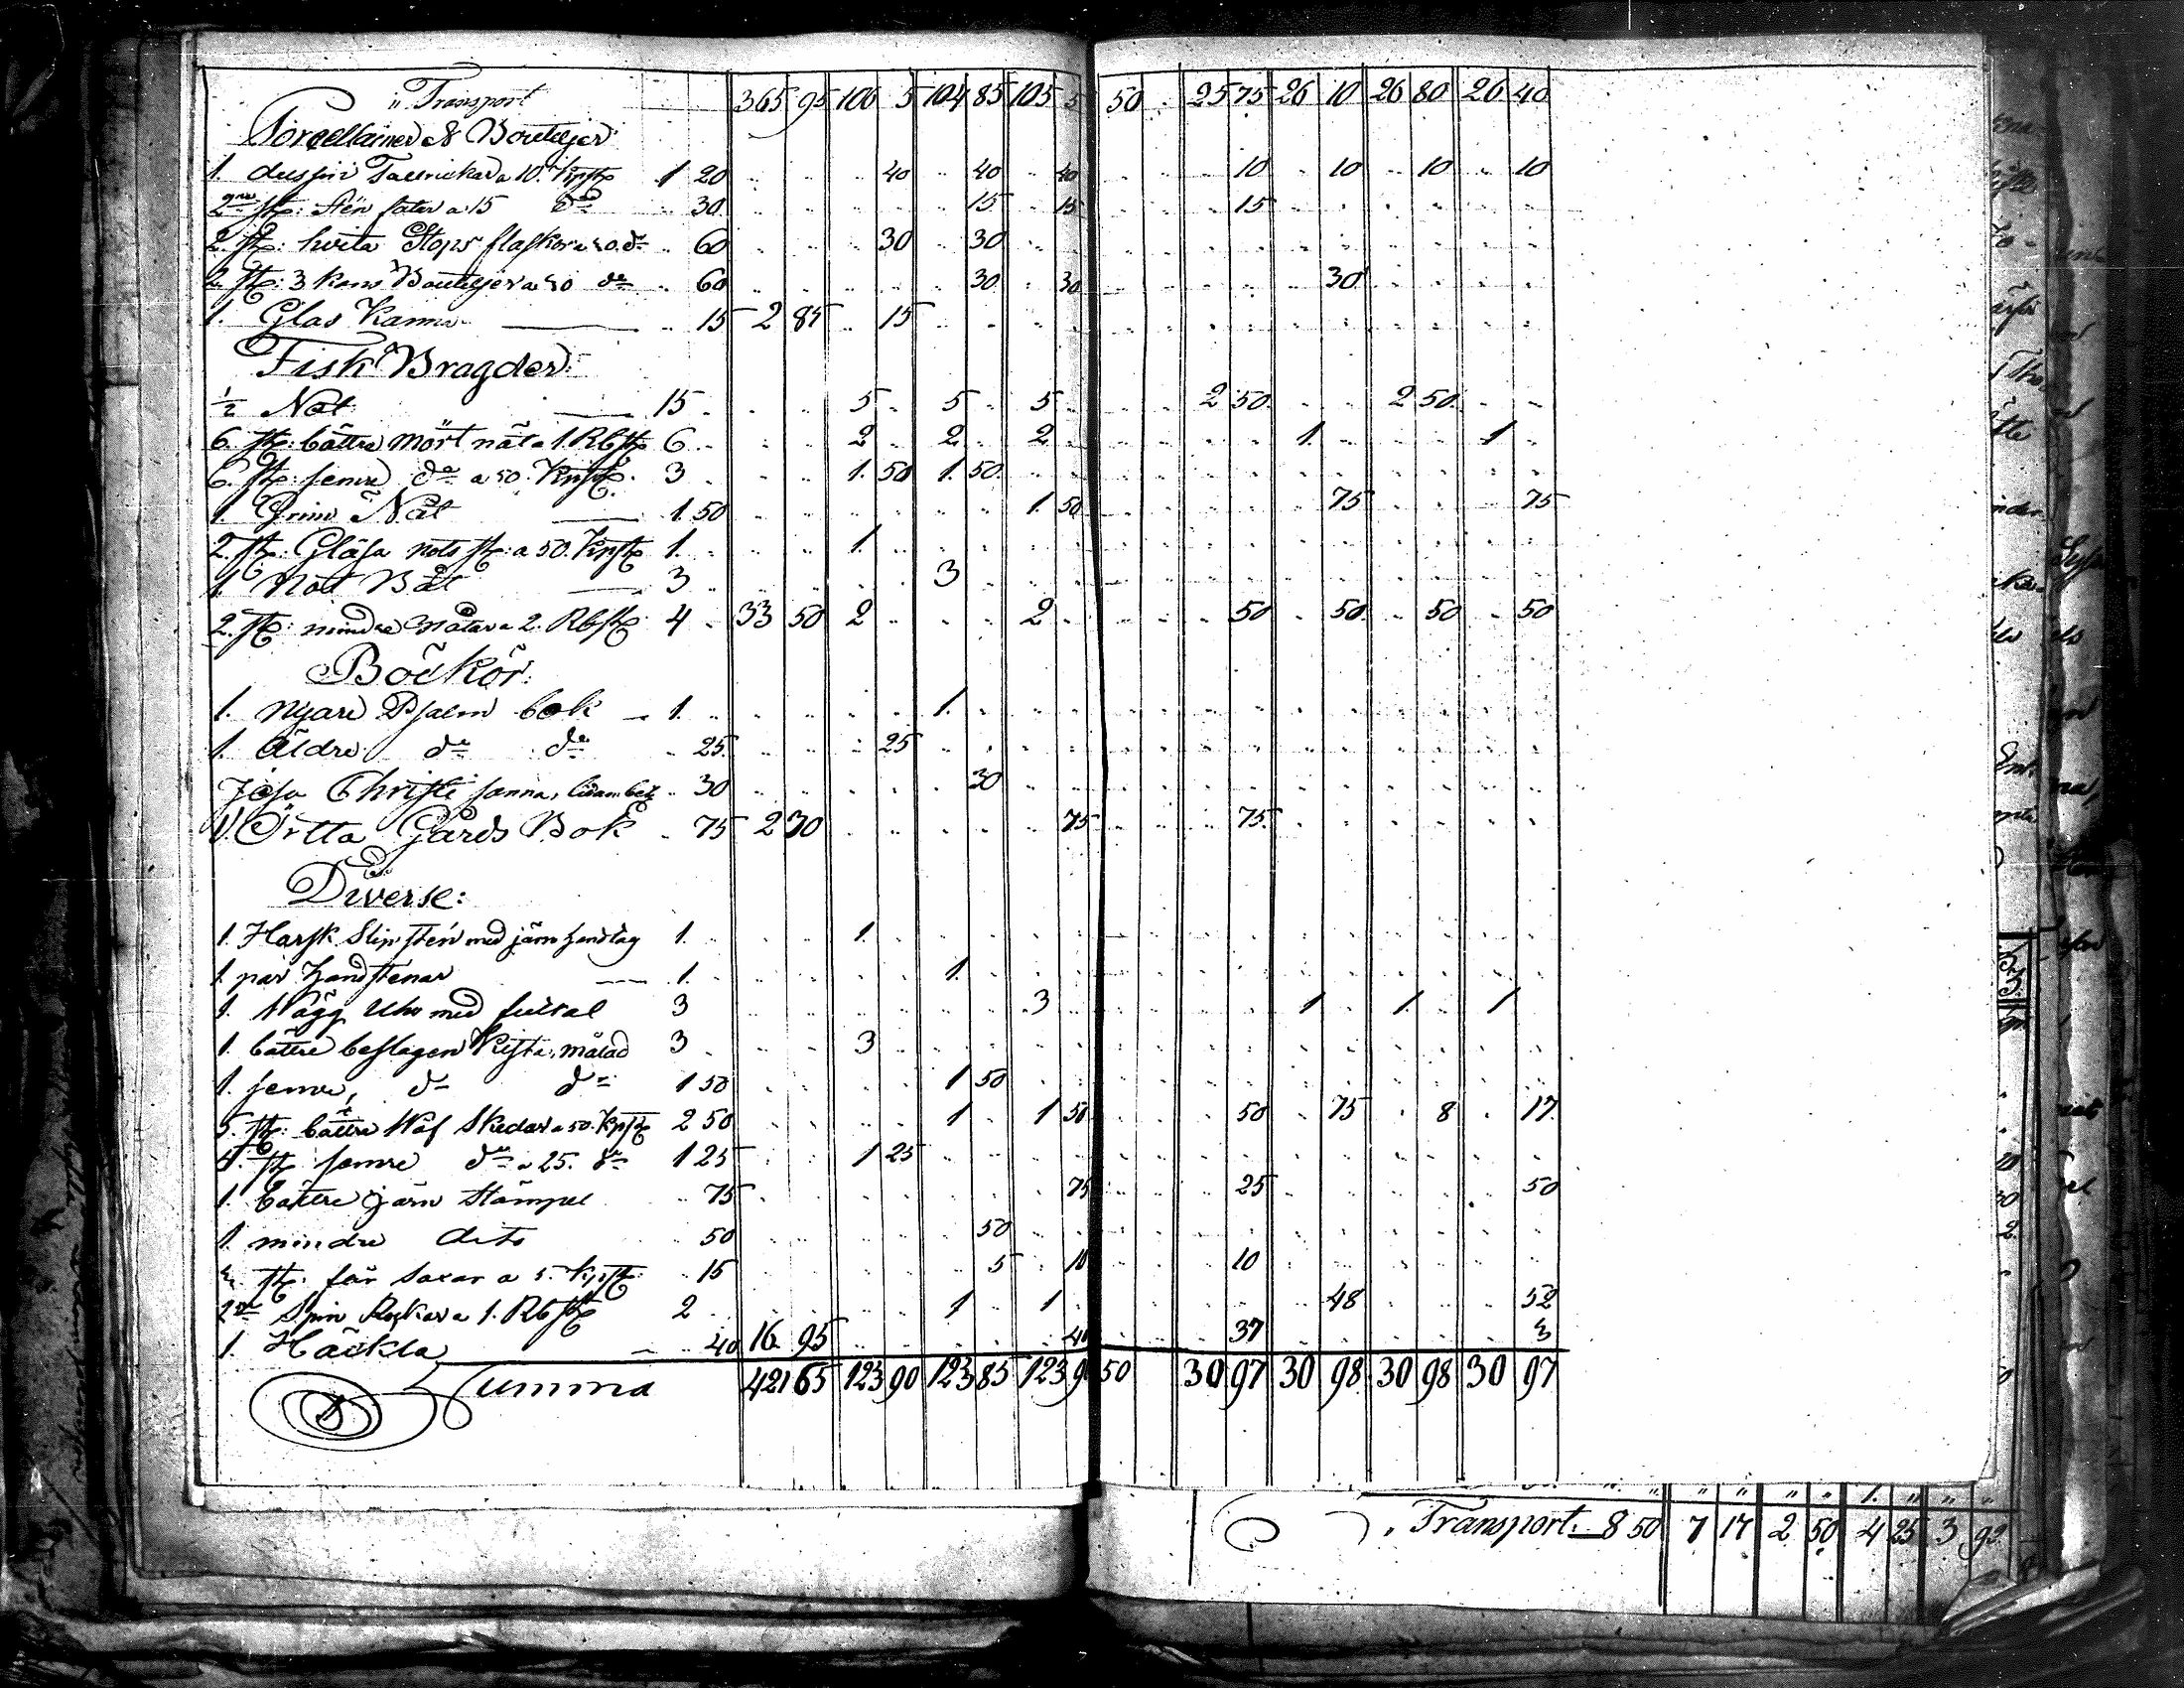 Transport 365 95 106 5 104 85 105 5 50 25 75 26 10 26 80 26 40
Porcellainer & Bouteljer
1. dussin Tallrickar a 10. Kpst 1 20 40 40 40 10 10 10 10
2 st: sten fater a 15 do 30 15 15 15
2. st: hvita Stops flaskor a 30 do 60 30 30
2. st: 3 kans Bouteljer a 30 do 60 30 30 30
1. Glas Kanna 15 2 85 15
Fisk Bragder:
1/2 Not 15 5 5 5 2 50 2 50
6. st: bättre mört nät a 1. Rbst 6 2 2 2 1 1
6. st: semre do a 50. Kpst. 3 1. 50 1. 50
1. Nät 1. 50 1. 50 75 75
2. st: Glåsa nots st: a 50. Kpst 1. 1.
1. Not Båt 3 3
2. st: mindre Båtar a 2. Rbst 4 33 50 2 2 50 50 50 50
Böcker:
1. nyare Psalm bok 1. 1.
1. Äldre do do 25 25
Jesu Christi sanna, 30 30
1. Örtta Gårds Bok 75 2 30 75 75
Diverse:
1. Harsk Slip sten med järn handtag 1. 1.
1. par Handstenar 1. 1.
1. Vägg Uhr med futral 3 3 1 1 1
1. bättre beslagen Kista, målad 3 3
1. semre, do do 1 50 1 50
5. st: bättre Väf Skedar a 50. Kpst 2 50 1 1 50 50 75 8 17
st semre do a 25. do 1 25 1 25
1. bättre järn Stämpel 75 75 25 50
1. mindre dito 50 50
3. st: får saxar a 5. Kpst 15 5 10 10
2 Spin Rockar a 1. Rbst 2 1 1 48 52
1. Häckla 40 16 95 40 37 3
Summa 421 65 123 90 123 85 123 9 50 30 97 30 98 30 98 30 97
Transport. 8 50 7 17 2 50 4 25 3 92